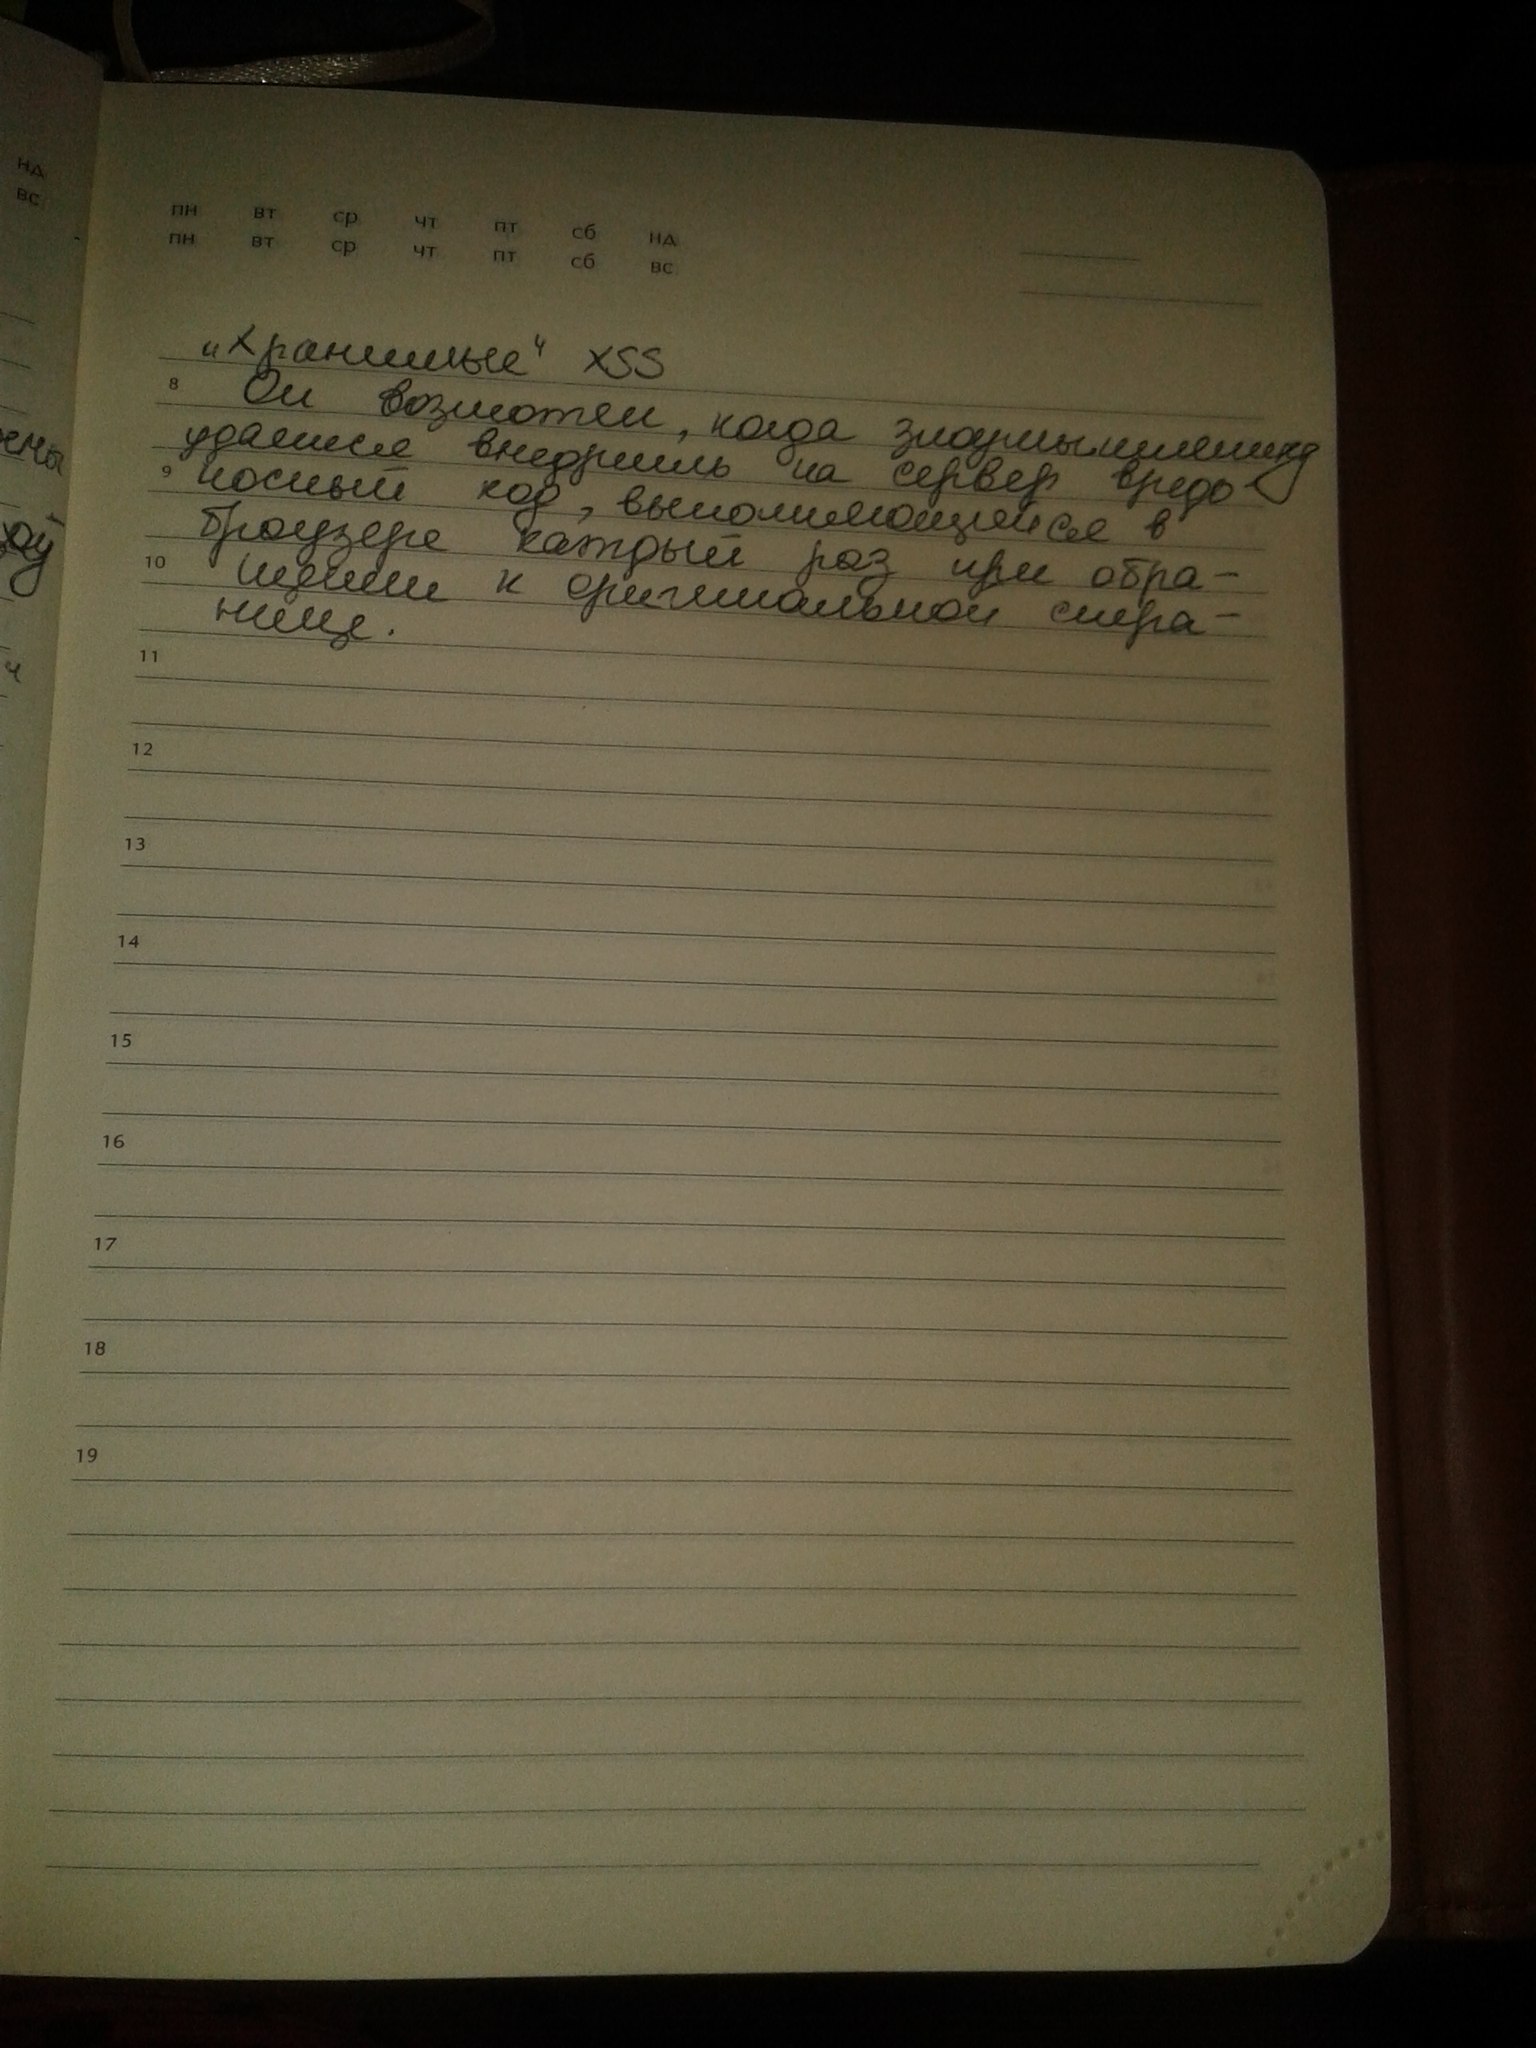 нд
вс
пн вт ср чт пт сб нд
пн вт ср чт пт сб вс
„Хранимые“ XSS
8
Он возможен, когда злоумышленику
удается внедрить на сервер вредо-
9
носный код, выполняющийся в
браузере каждый раз при обра-
10
щении к оригинальной стра-
нице.
11
12
13
14
15
16
17
18
19